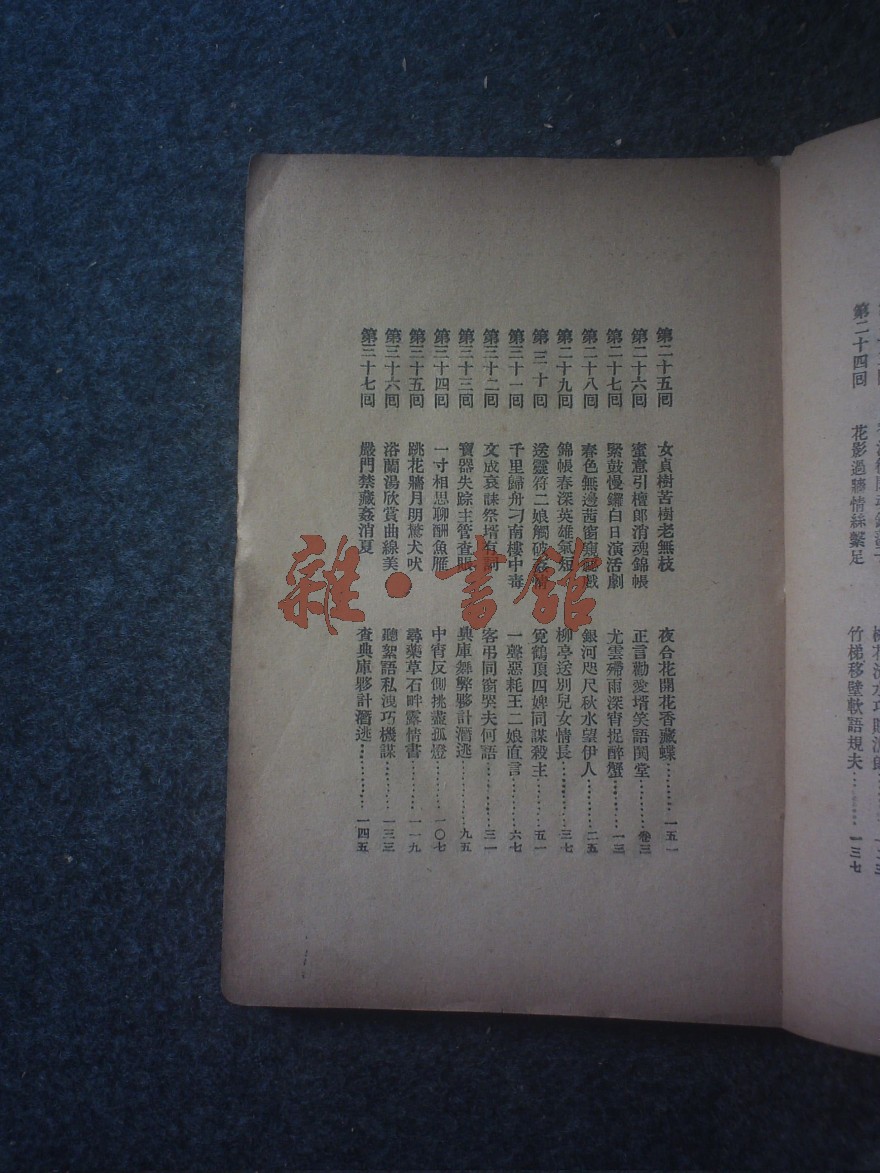 第二十四回 花影過牆情絲繫足 竹梯移壁軟語規夫………一三七
第二十五回 女貞樹苦樹老無枝 夜合花開花香藏蝶………一五一
第二十六回 蜜意引檀郎消魂錦帳 正言勸愛壻笑語閨堂………卷三
第二十七回 緊鼓慢鑼白日演活劇 尤雲殢雨深宵捉醉蟹………一三
第二十八回 春色無邊茜窗窺 戲 銀河咫尺秋水望伊人………二五
第二十九回 錦帳春深英雄氣短 柳亭送別兒女情長………三七
第三十回 送靈符二娘觸破 覓鶴頂四婢同謀殺主………五一
第三十一回 千里歸舟刁南樓中毒 一聲惡耗王二娘直言………六七
第三十二回 文成哀誄祭壻有詞 客弔同窗哭夫何語………三一
第三十三回 寶器失踪主管查賬 典庫舞弊夥計潛逃………九五
第三十四回 一寸相思聊酬魚雁 中宵反側挑盡孤燈………一〇七
第三十五回 跳花牆月明驚犬吠 尋藥草石畔露情書………一一九
第三十六回 浴蘭湯欣賞曲線美 聽絮語私洩巧機謀………一三三
第三十七回 嚴門禁藏姦消夏 查典庫夥計潛逃………一四五
雜·書館